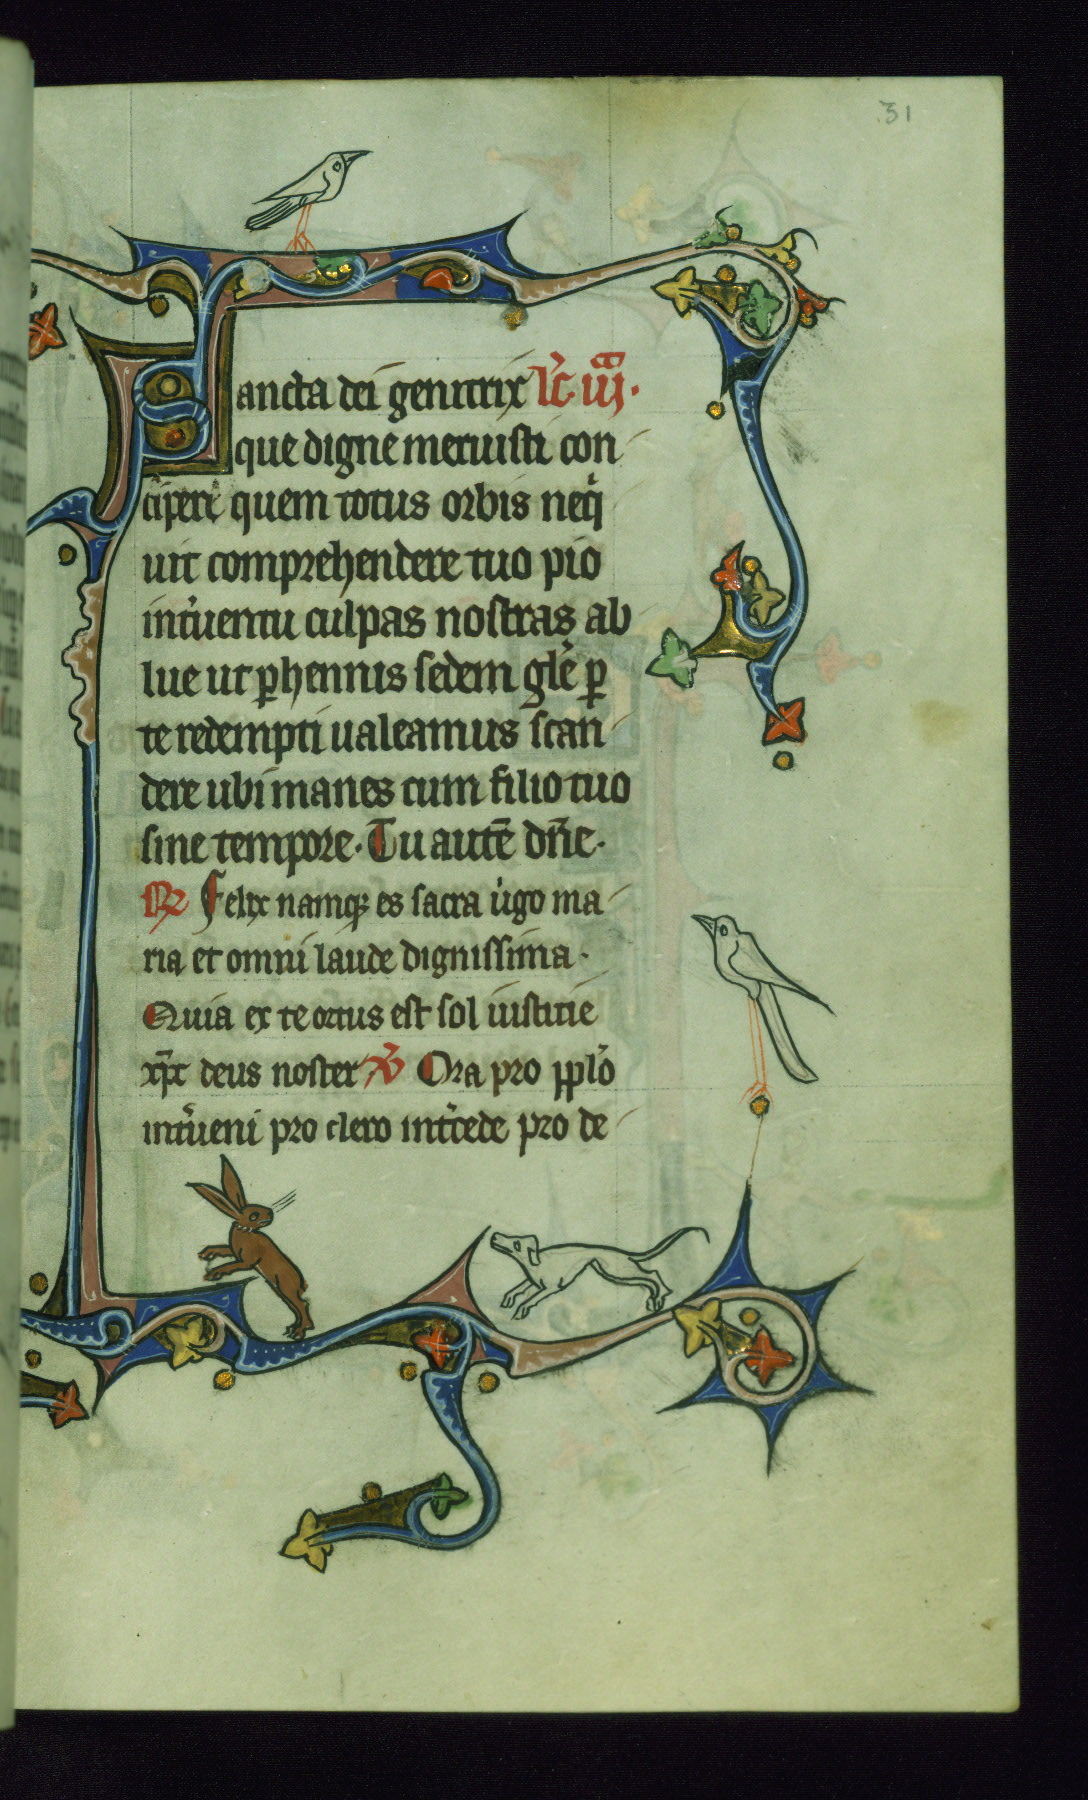 31
Sancta dei genitrix lc̄ iii.
que digne meruisti con
cipere quem totus orbis neq̇
uit comprehendere tuo pio
int̓uentu culpas nostras ab
lue ut ꝑhennis sedem glē ꝑ
te redempti ualeamus scan
dere ubi manes cum filio tuo
sine tempore. Tu autē dn̄e.
℞ Felix namqꝫ es sacra u̓go ma
ria et omni laude dignissima.
Quia ex te ortus est sol iusticie
xp̄c deus noster ℣ Ora pro pplo̓
int̓ueni pro clero int̓cede pro de